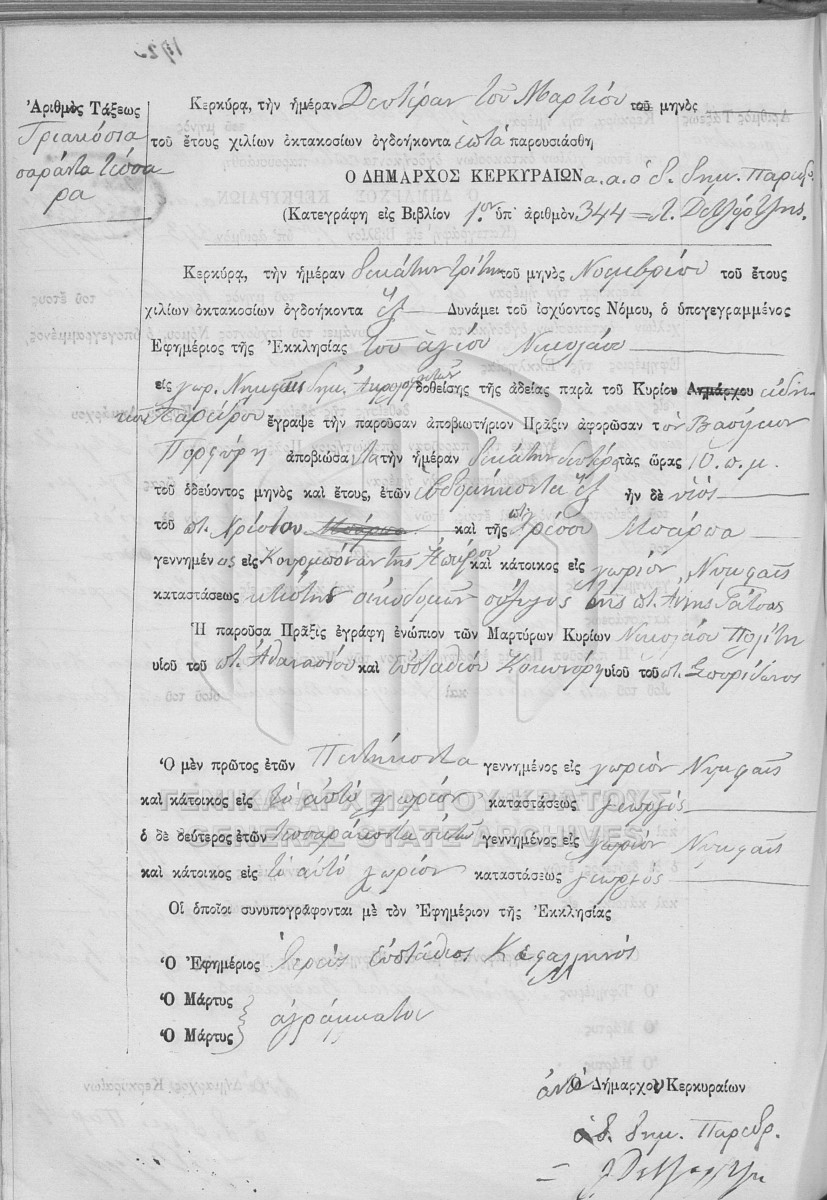 Ἀριθμὸς Τάξεως
Τριακόσια
σαράντα τέσσα
ρα
Κερκύρᾳ, τὴν ἡμέραν Δευτέραν τοῦ Μαρτίου τοῦ μηνὸς
τοῦ ἔτους χιλίων ὀκτακοσίων ὀγδοήκοντα ἑπτὰ παρουσιάσθη
Ο ΔΗΜΑΡΧΟΣ ΚΕΡΚΥΡΑΙΩΝ α.α. ὁ δ. δημ. Παρεδρ.
(Κατεγράφη εἰς Βιβλίον 1ον ὑπ' ἀριθμὸν 344 =
Κερκύρᾳ, τὴν ἡμέραν δεκάτην τρίτην τοῦ μηνὸς Νοεμβρίου τοῦ ἔτους
χιλίων ὀκτακοσίων ὀγδοήκοντα ἕξ Δυνάμει τοῦ ἰσχύοντος Νόμου, ὁ ὑπογεγραμμένος
Ἐφημέριος τῆς Ἐκκλησίας τοῦ ἁγίου Νικολάου
εἰς χωρ. δημ. δοθείσης τῆς ἀδείας παρὰ τοῦ Κυρίου Δημάρχου εἰδη
κοῦ Παρέδρου ἔγραψε τὴν παροῦσαν ἀποβιωτήριον Πρᾶξιν ἀφορῶσαν τὸν Βασίλειον
Πορφύρη ἀποβιώσαντα τὴν ἡμέραν δεκάτην δευτέρα τὰς ὥρας 10. π.μ.
τοῦ ὁδεύοντος μηνὸς καὶ ἔτους, ἐτῶν ἑβδομήκοντα ἕξ ἦν δὲ υἱὸς
τοῦ ποτ. Χρίστου Μπάρμπα καὶ τῆς ποτ. Μπάρμπα
γεννημένος εἰς τῆς Ἠπείρου καὶ κάτοικος εἰς χωρίον Νυμφαῖς
καταστάσεως κτίστης οἰκοδομῶν σύζυγος τῆς ποτ.
Ἡ παροῦσα Πρᾶξις ἐγράφη ἐνώπιον τῶν Μαρτύρων Κυρίων Νικολάου Πολίτη
υἱοῦ τοῦ ποτ. Ἀθανασίου καὶ Εὐσταθίου υἱοῦ τοῦ ποτ. Σπυρίδωνος
Ὁ μὲν πρῶτος ἐτῶν Πεντήκοντα γεννημένος εἰς χωρίον Νυμφαῖς
καὶ κάτοικος εἰς τὸ αὐτὸ χωρίον καταστάσεως γεωργός
ὁ δὲ δεύτερος ἐτῶν τεσσαράκοντα ὀκτὼ γεννημένος εἰς χωρίον Νυμφαῖς
καὶ κάτοικος εἰς τὸ αὐτὸ χωρίον καταστάσεως γεωργός
Οἱ ὁποῖοι συνυπογράφονται μὲ τὸν Ἐφημέριον τῆς Ἐκκλησίας
Ὁ Ἐφημέριος Ἱερεὺς Εὐστάθιος Κεφαλληνός
Ὁ Μάρτυς
ἀγράμματοι
Ὁ Μάρτυς
ἀντὶ Ὁ Δήμαρχου Κερκυραίων
ὁ δ. δημ. Παρεδρ.
ΓΕΝΙΚΑ ΑΡΧΕΙΑ ΤΟΥ ΚΡΑΤΟΥΣ
GENERAL STATE ARCHIVES